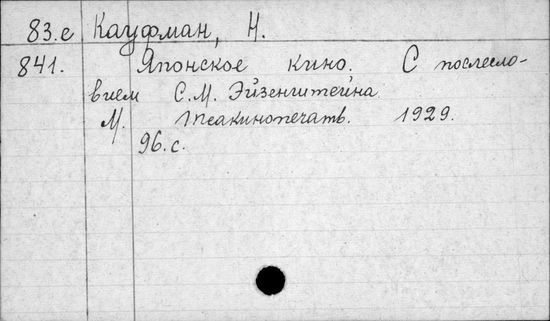 83.е Кауфман, Н.
841. Японское кино. С послесло-
вием С.М. Эйзенштейна
М. Теакинопечать. 1929.
96.с.